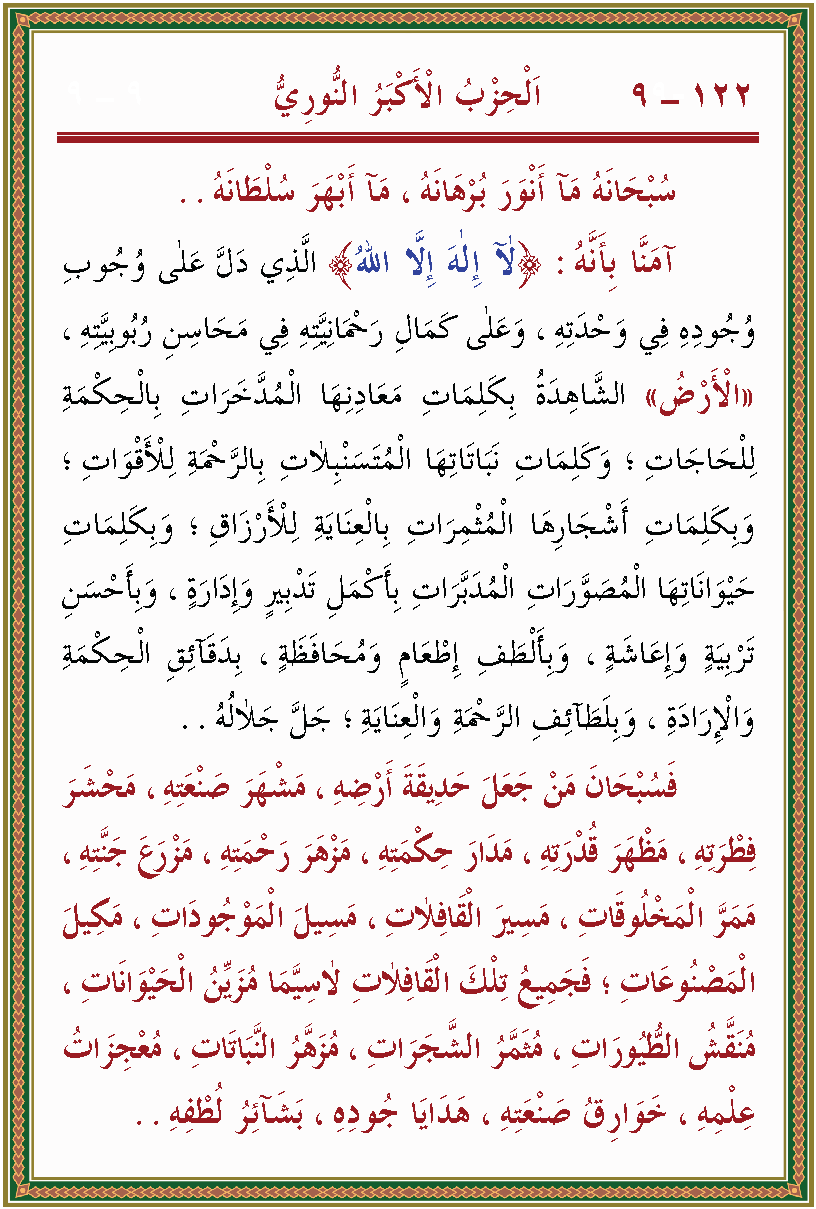 ١٢٢ – ٩ اَلْحِزْبُ الْأَكْبَرُ النُّورِيُّ ٩ – ٩
سُبْحَانَهُ مَآ أَنْوَرَ بُرْهَانَهُ ، مَآ أَبْهَرَ سُلْطَانَهُ . .
آمَنَّا بِأَنَّهُ : ﴿لَآ إِلٰهَ إِلَّا اللهُ﴾ الَّذِي دَلَّ عَلٰى وُجُوبِ
وُجُودِهِ فِي وَحْدَتِهِ ، وَعَلٰى كَمَالِ رَحْمَانِيَّتِهِ فِي مَحَاسِنِ رُبُوبِيَّتِهِ ،
«الْأَرْضُ» الشَّاهِدَةُ بِكَلِمَاتِ مَعَادِنِهَا الْمُدَّخَرَاتِ بِالْحِكْمَةِ
لِلْحَاجَاتِ ؛ وَكَلِمَاتِ نَبَاتَاتِهَا الْمُتَسَنْبِلَاتِ بِالرَّحْمَةِ لِلْأَقْوَاتِ ؛
وَبِكَلِمَاتِ أَشْجَارِهَا الْمُثْمِرَاتِ بِالْعِنَايَةِ لِلْأَرْزَاقِ ؛ وَبِكَلِمَاتِ
حَيْوَانَاتِهَا الْمُصَوَّرَاتِ الْمُدَبَّرَاتِ بِأَكْمَلِ تَدْبِيرٍ وَإِدَارَةٍ ، وَبِأَحْسَنِ
تَرْبِيَةٍ وَإِعَاشَةٍ ، وَبِأَلْطَفِ إِطْعَامٍ وَمُحَافَظَةٍ ، بِدَقَآئِقِ الْحِكْمَةِ
وَالْإِرَادَةِ ، وَبِلَطَآئِفِ الرَّحْمَةِ وَالْعِنَايَةِ ؛ جَلَّ جَلَالُهُ . .
فَسُبْحَانَ مَنْ جَعَلَ حَدِيقَةَ أَرْضِهِ ، مَشْهَرَ صَنْعَتِهِ ، مَحْشَرَ
فِطْرَتِهِ ، مَظْهَرَ قُدْرَتِهِ ، مَدَارَ حِكْمَتِهِ ، مَزْهَرَ رَحْمَتِهِ ، مَزْرَعَ جَنَّتِهِ ،
مَمَرَّ الْمَخْلُوقَاتِ ، مَسِيرَ الْقَافِلَاتِ ، مَسِيلَ الْمَوْجُودَاتِ ، مَكِيلَ
الْمَصْنُوعَاتِ ؛ فَجَمِيعُ تِلْكَ الْقَافِلَاتِ لَاسِيَّمَا مُزَيِّنُ الْحَيْوَانَاتِ ،
مُنَقَّشُ الطُّيُورَاتِ ، مُثَمَّرُ الشَّجَرَاتِ ، مُزَهَّرُ النَّبَاتَاتِ ، مُعْجِزَاتُ
عِلْمِهِ ، خَوَارِقُ صَنْعَتِهِ ، هَدَايَا جُودِهِ ، بَشَآئِرُ لُطْفِهِ . .